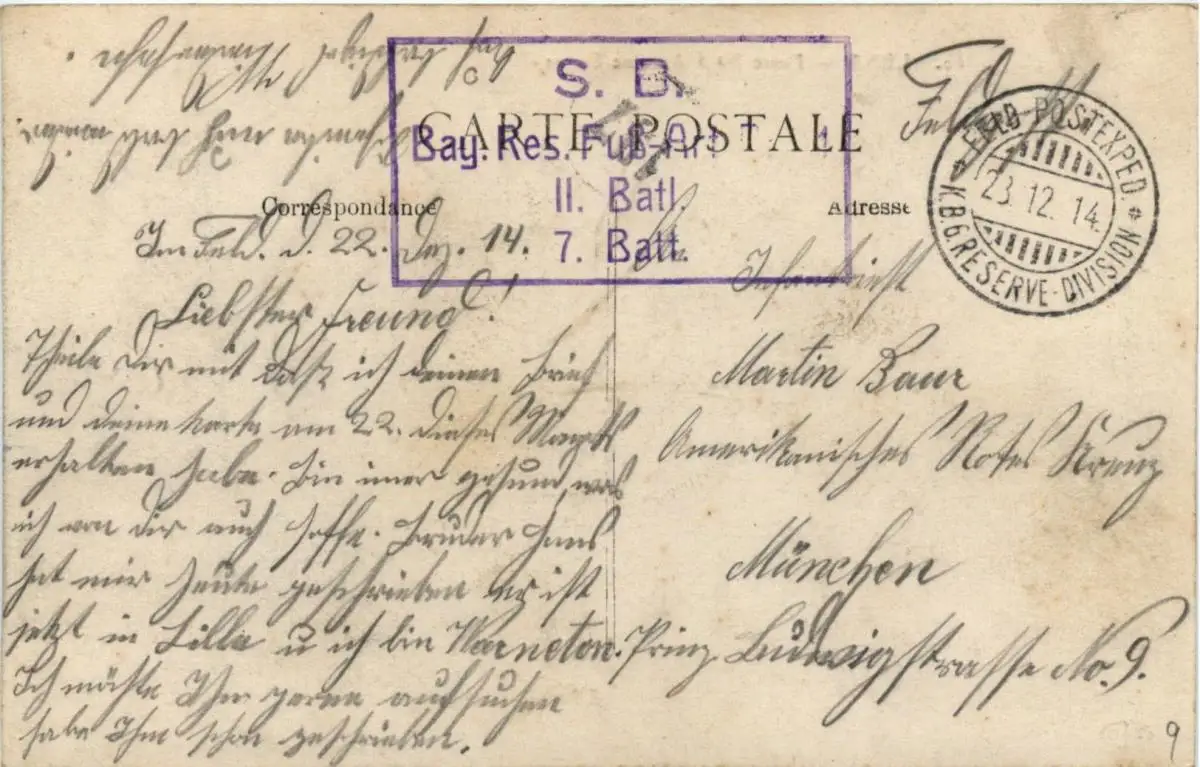 S. B.
CARTE POSTALE
Bay. Res. Fuß-Art
II. Batl.
7. Batt.
Correspondance
Adresse
FELD-POSTEXPED.
23.12.14.
K.B.6.RESERVE-DIVISION
Im Feld. d. 22. Dez. 14.
Liebster Freund!
Theile Dir mit daß ich deinen Brief
und deine Karte am 22. dieses Monats
erhalten habe. Bin imer gesund, was
ich von Dir auch hoffe. Bruder Hans
hat mir heute geschrieben er ist
jetzt in Lille u ich bin Warneton.
Ich möchte Ihm gerne aufsuchen
habe Ihm schon geschrieben.
Martin Baur
Amerikanisches Rotes Kreuz
München
Prinz Ludwigstrasse No. 9.
9